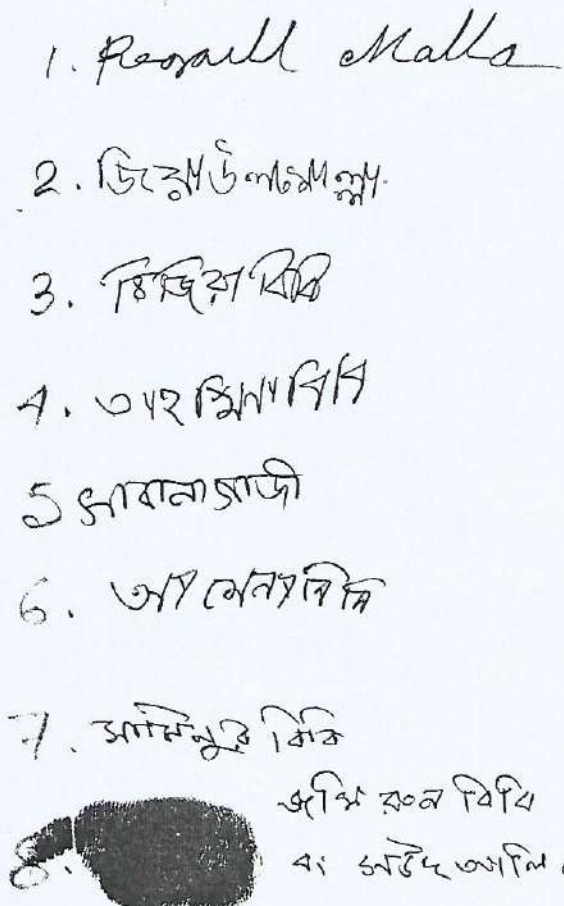 1. Rezaull Malla
2. জিয়াউল মাল্লা
3. রিজিয়া বিবি
4. তাহমিনা বিবি
5 সাবানা গাজী
6. আমেনা বিবি
7. সামিনুর বিবি
জমিরন বিবি
8. বঃ সউদ আলি